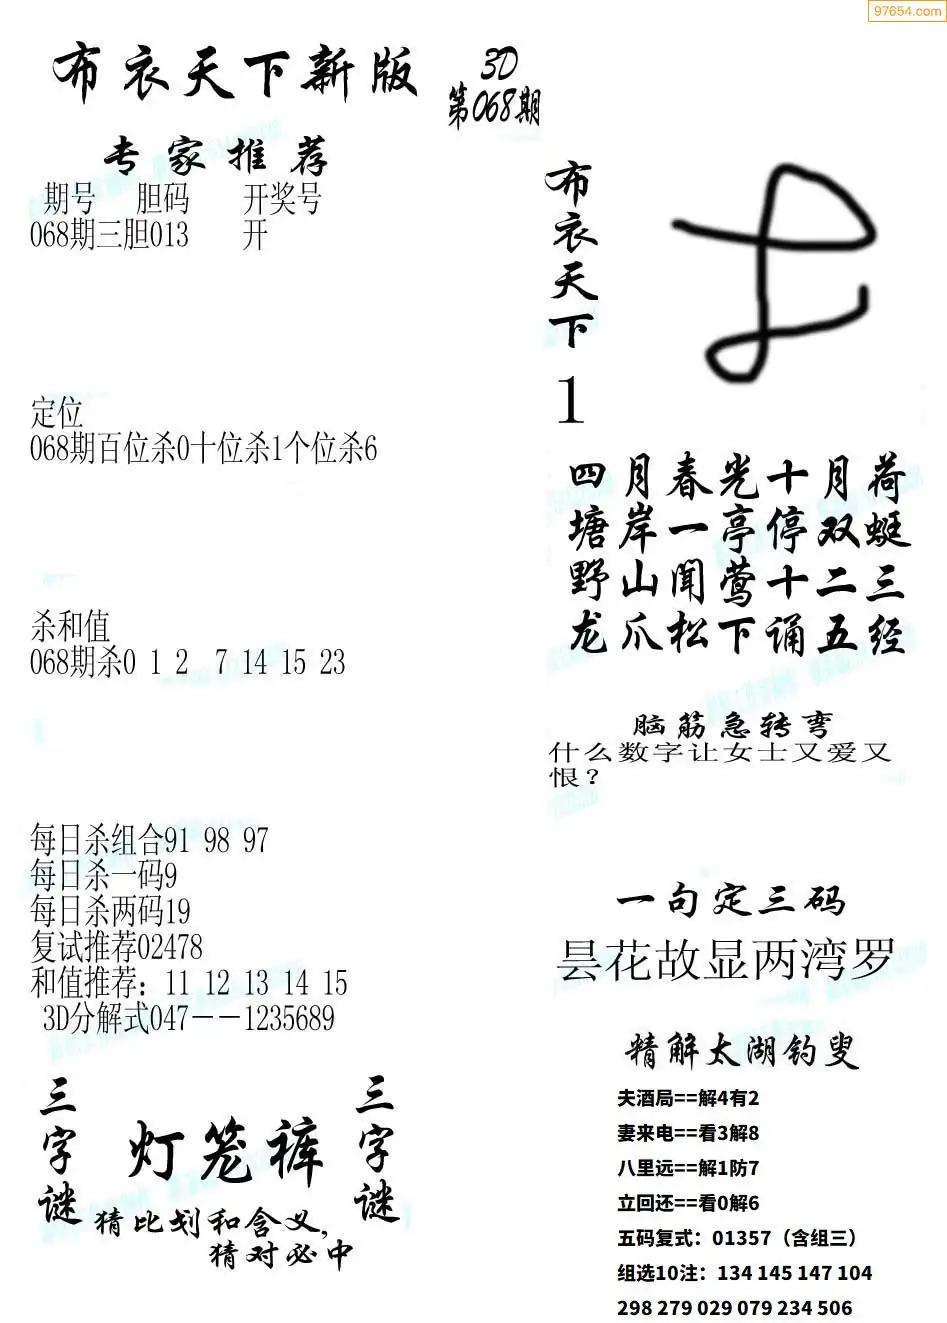 97654.com
布衣天下新版
3D
第068期
专家推荐
期号 胆码 开奖号
068期三胆013 开
定位
068期百位杀0十位杀1个位杀6
杀和值
068期杀0 1 2 7 14 15 23
每日杀组合91 98 97
每日杀一码9
每日杀两码19
复试推荐02478
和值推荐：11 12 13 14 15
3D分解式047－－1235689
三字谜
灯笼裤
三字谜
猜比划和含义，
猜对必中
布衣天下
1
四月春光十月荷
塘岸一亭停双蜓
野山闻莺十二三
龙爪松下诵五经
脑筋急转弯
什么数字让女士又爱又
恨？
一句定三码
昙花故显两湾罗
精解太湖钓叟
夫酒局==解4有2
妻来电==看3解8
八里远==解1防7
立回还==看0解6
五码复式：01357（含组三）
组选10注：134 145 147 104
298 279 029 079 234 506